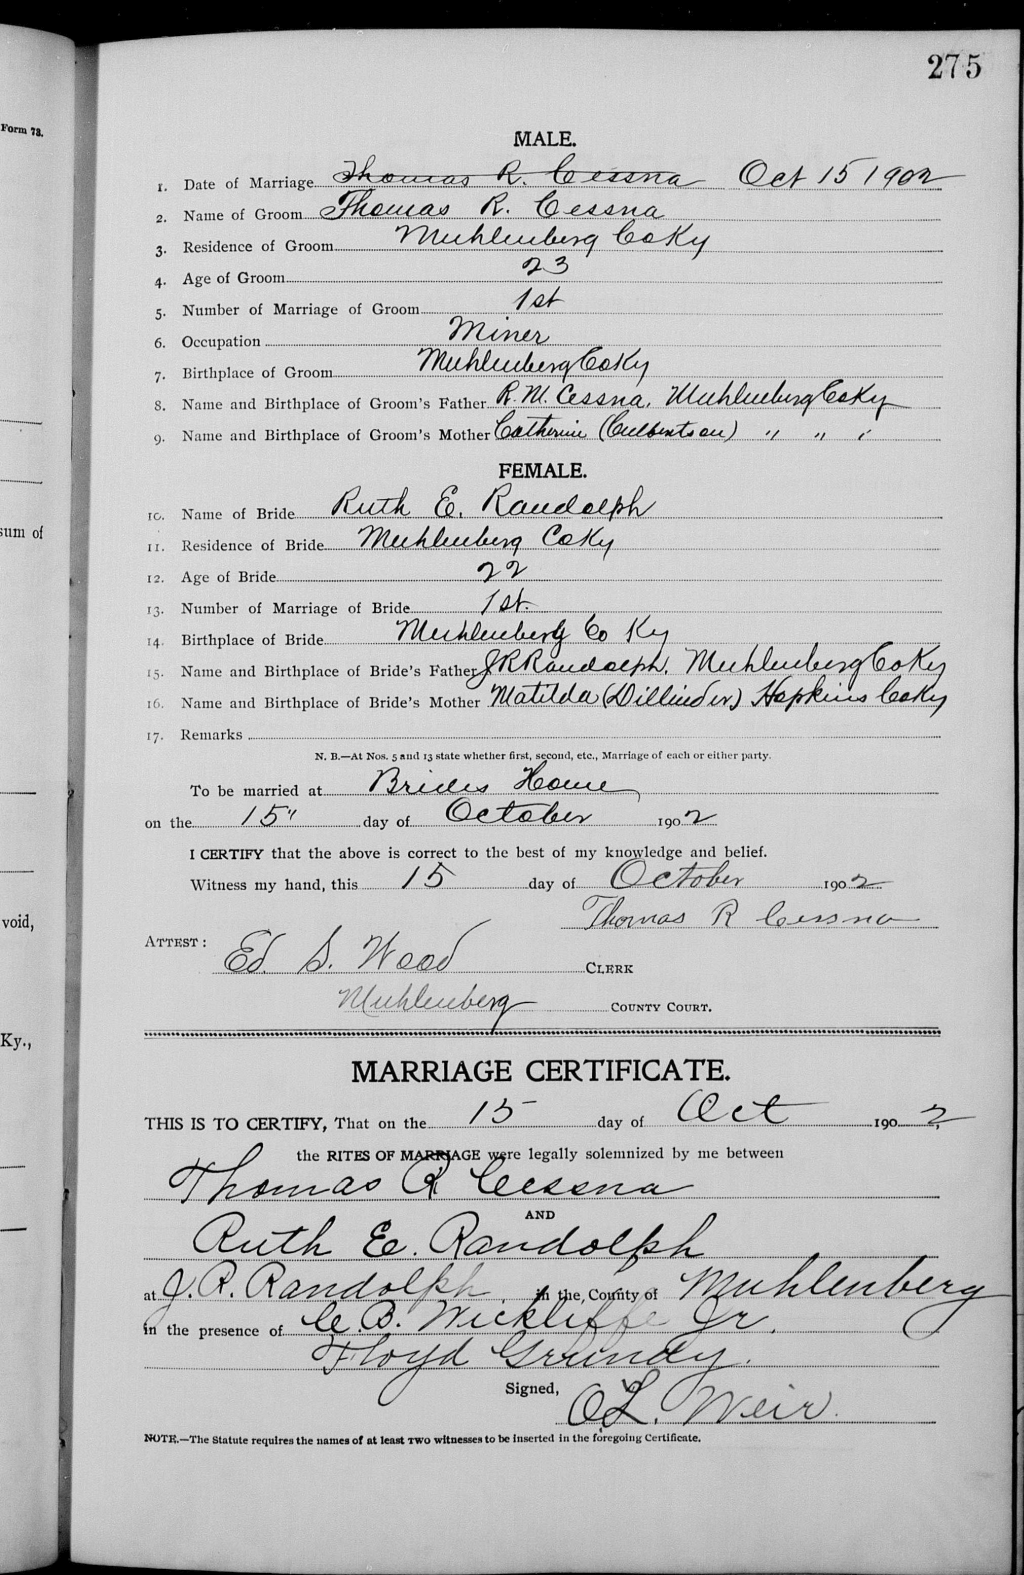 275
Form 73.
MALE.
1. Date of Marriage Thomas R. Cessna Oct 15 1902
2. Name of Groom Thomas R. Cessna
3. Residence of Groom Muhlenberg Co Ky
4. Age of Groom 23
5. Number of Marriage of Groom 1st
6. Occupation Miner
7. Birthplace of Groom Muhlenberg Co Ky
8. Name and Birthplace of Groom's Father R. M. Cessna, Muhlenberg Co Ky
9. Name and Birthplace of Groom's Mother Catherine (Culbertson) " " "
FEMALE.
10. Name of Bride Ruth E. Randolph
11. Residence of Bride Muhlenberg Co Ky
12. Age of Bride 22
13. Number of Marriage of Bride 1st.
14. Birthplace of Bride Muhlenberg Co Ky
15. Name and Birthplace of Bride's Father J R Randolph, Muhlenberg Co Ky
16. Name and Birthplace of Bride's Mother Matilda (Dillinder) Hopkins Co Ky
sum of
17. Remarks
N. B.—At Nos. 5 and 13 state whether first, second, etc., Marriage of each or either party.
To be married at Brides Home
on the 15" day of October 1902
I CERTIFY that the above is correct to the best of my knowledge and belief.
Witness my hand, this 15 day of October 1902
Thomas R Cessna
void,
ATTEST: Ed. S. Wood CLERK
Muhlenberg COUNTY COURT.
Ky.,
MARRIAGE CERTIFICATE.
THIS IS TO CERTIFY, That on the 15 day of Oct 1902,
the RITES OF MARRIAGE were legally solemnized by me between
Thomas R Cessna
AND
Ruth E. Randolph
at J. R. Randolph, in the County of Muhlenberg
in the presence of C. B. Wickliffe Jr.
Floyd Grundy.
Signed, O. L. Weir.
NOTE.—The Statute requires the names of at least TWO witnesses to be inserted in the foregoing Certificate.